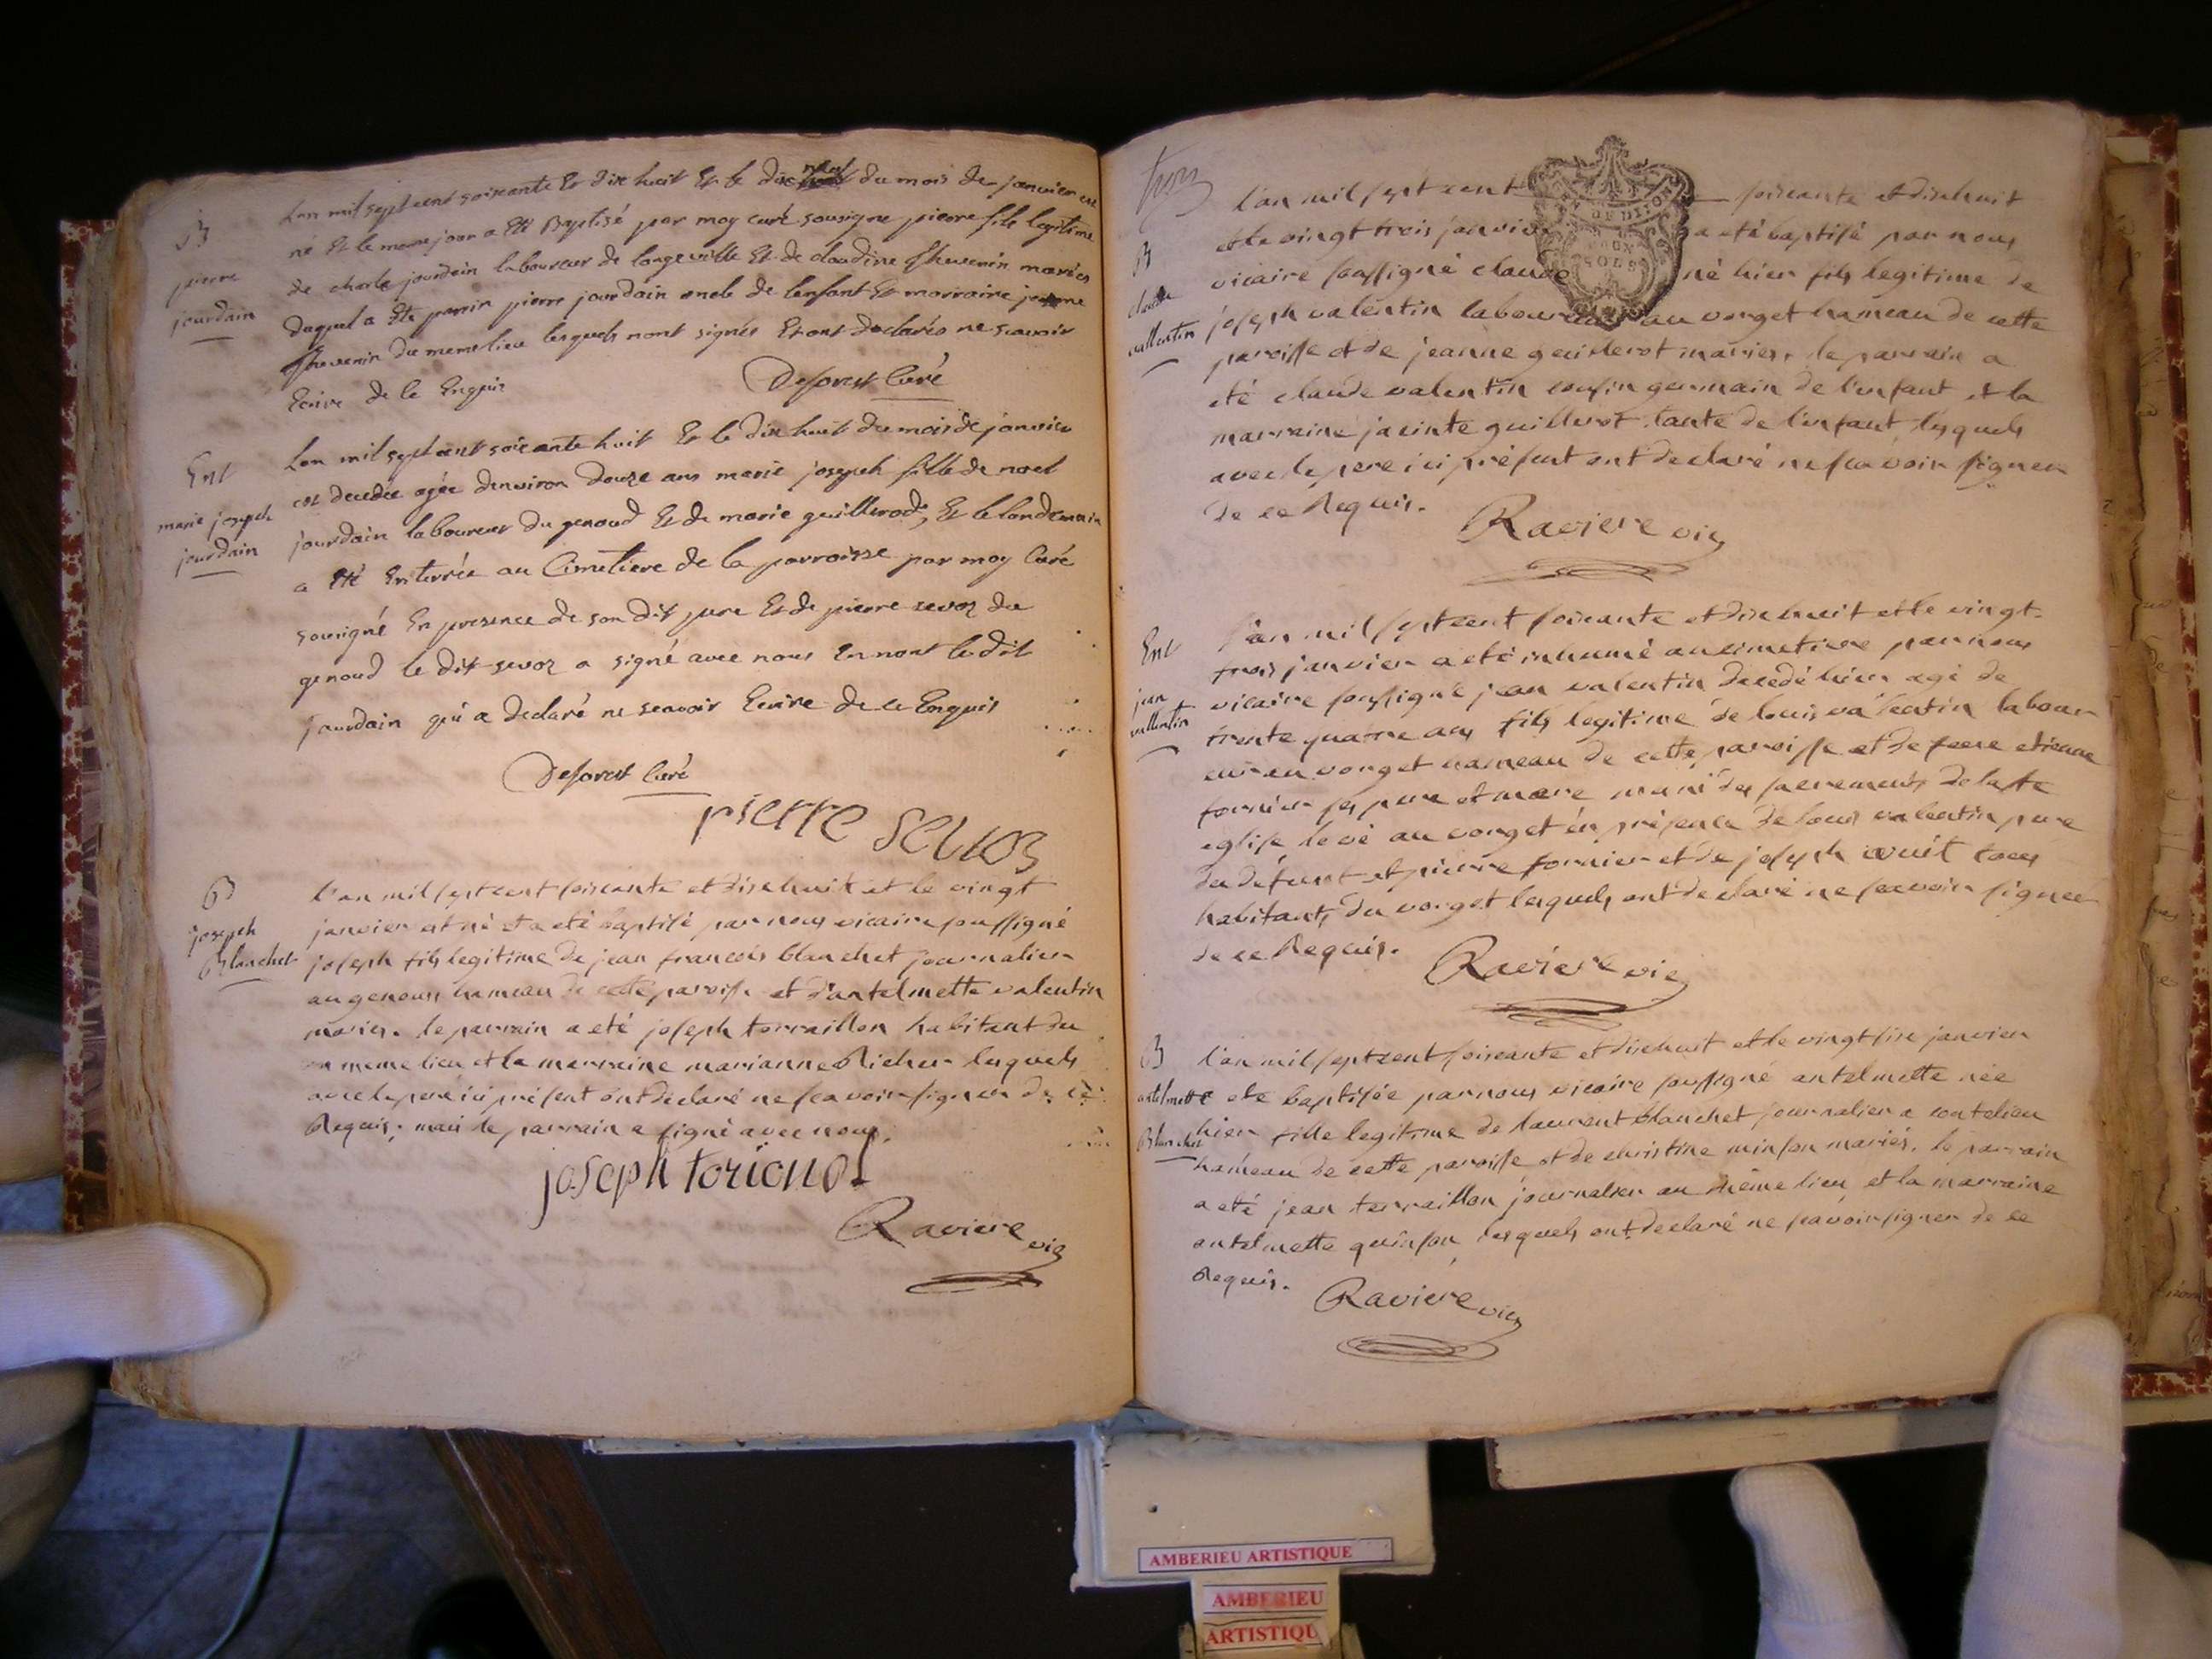 B
pierre
jourdain
Lan mil sept cent soixante Et dix huit Et le dix neuf du mois de janvier est
né Et le meme jour a Eté Baptisé par moy curé sousigne pierre fils legitime
de charle jourdain laboureur de longeville Et de claudine thevenin mariés
duquel a Eté parrin pierre jourdain oncle de lenfant Et marraine jeanne
thevenin du meme lieu lesquels nont signés Et ont declarés ne scavoir
Ecrire de le Enquis
Deforest Curé
Ent
marie joseph
jourdain
Lan mil sept cent soixante huit Et le dix huit du mois de janvier
est decedée agée denviron douze ans marie joseph fille de noel
jourdain laboureur du genoud Et de marie guillerod, Et le landemain
a Eté Enterrée au Cimetiere de la parroisse par moy Curé
sousigné En presence de son dit pere Et de pierre sevoz du
genoud le dit sevoz a signé avec nous En nont le dit
jourdain qui a declaré ne scavoir Ecrire de ce Enquis
Deforest Curé
pierre sevos
B
joseph
Blanchet
l'an mil sept cent soixante et dix huit et le vingt
janvier est né et a eté baptisé par nous vicaire soussigné
joseph fils legitime de jean francois blanchet journalier
au genoux hameau de cette paroisse et d'antelmette valentin
mariés. le parrain a eté joseph torraillon habitant du
meme lieu et la marraine marianne Richer lesquels
avec le pere ici présent ont declaré ne scavoir signer de ce
Requis; mais le parrain a signé avec nous.
joseph
Raviere vic
B
claude
vallentin
l'an mil sept cent soixante et dix huit
et le vingt trois janvier a eté baptisé par nous
vicaire soussigné claude né hier fils legitime de
joseph valentin laboureur au vorget hameau de cette
paroisse et de jeanne guillerot mariés. le parrain a
eté claude valentin cousin germain de l'enfant et la
marraine jacinte guillerot tante de l'enfant lesquels
avec le pere ici présent ont declaré ne scavoir signer
de ce Requis.
Raviere vic
Ent
jean
vallentin
l'an mil sept cent soixante et dix huit et le vingt
trois janvier a eté inhumé au cimetiere par nous
vicaire soussigné jean valentin decedé hier agé de
trente quatre ans fils legitime de louis valentin labour
eur au vorget hameau de cette paroisse et de feue etienne
fornier ses pere et mere muni des sacrements de la ste
eglise levé au vorget en présence de louis valentin pere
du défunt et pierre fornier et de joseph tous
habitants du vorget lesquels ont declaré ne scavoir signer
de ce Requis.
Raviere vic
B
antelmette
Blanchet
l'an mil sept cent soixante et dix huit et le vingt six janvier
eté baptisée par nous vicaire soussigné antelmette née
hier fille legitime de laurent blanchet journalier a contelieu
hameau de cette paroisse et de christine minson mariés. le parrain
a eté jean terraillon journalier au même lieu et la marraine
antelmette quinson, lesquels ont declaré ne scavoir signer de ce
Requis.
Raviere vic
AMBERIEU ARTISTIQUE
AMBERIEU
ARTISTIQU